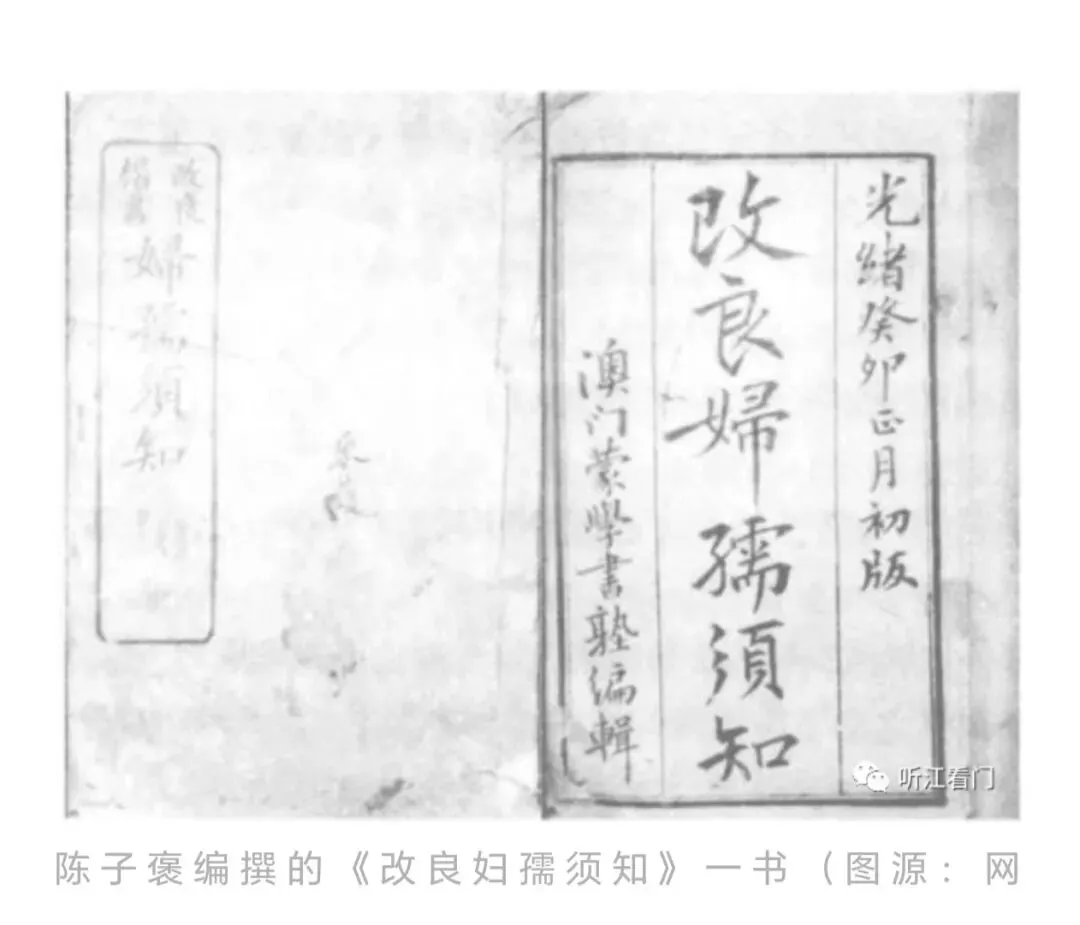 光緒癸卯正月初版
改良婦孺須知
澳门蒙學書塾編輯
改良
婦孺須知
听江看门
陈子褒编撰的《改良妇孺须知》一书（图源：网